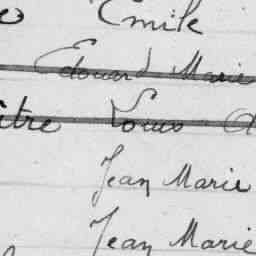 Emile
Edouard Marie
ître Louis A
Jean Marie
Jean Marie